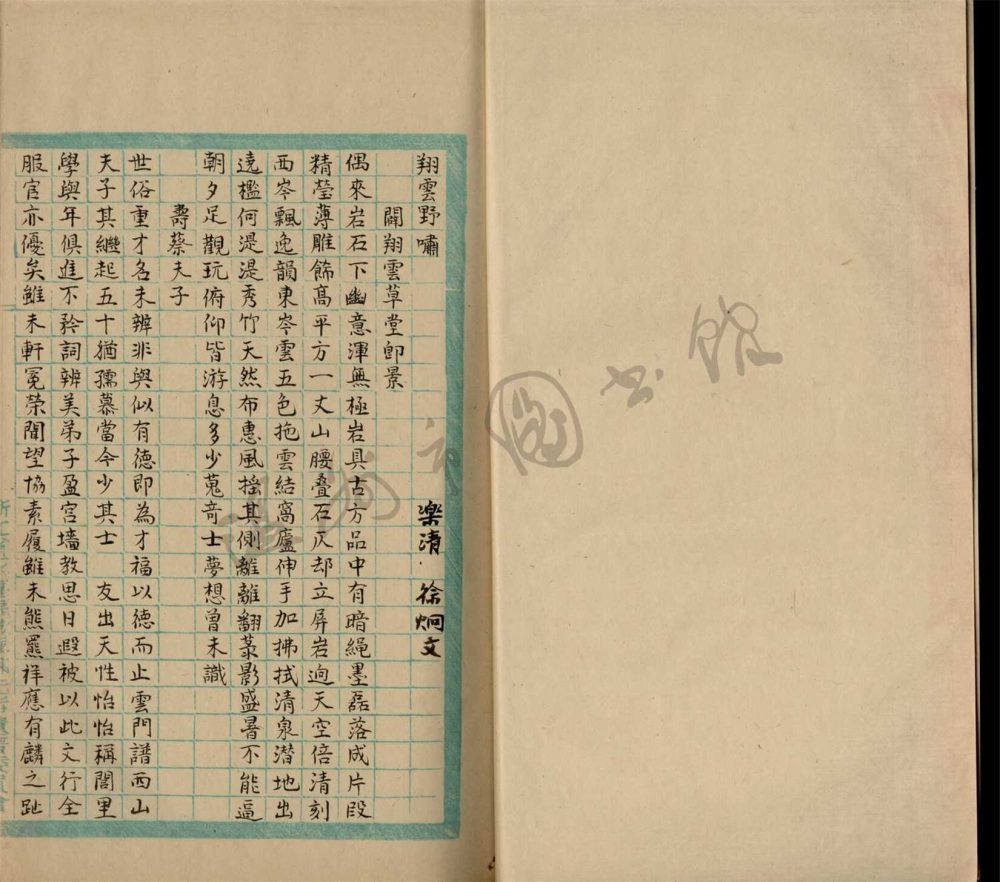 翔雲野嘯　樂清　徐炯文
闢翔雲草堂即景
偶來岩石下幽意渾無極岩具古方品中有暗繩墨磊落成片段
精瑩薄雕飾高平方一丈山腰疊石仄却立屏岩逈天空倍清刻
西岑飄逸韻東岑雲五色拖雲結窩廬伸手加拂拭清泉潛地出
遶檻何湜湜秀竹天然布惠風搖其側離離翻菉影盛暑不能逼
朝夕足觀玩俯仰皆游息多少蒐奇士夢想曾未識
壽蔡夫子
世俗重才名未辨非與似有德即為才福以德而止雲門譜西山
夫子其繼起五十猶孺慕當今少其士　友出天性怡怡稱閭里
學與年俱進不矜詞辨美弟子盈宮墻教思日遐被以此文行全
服官亦優矣雖未軒冕榮聞望協素履雖未熊羆祥應有麟之趾
圖書館